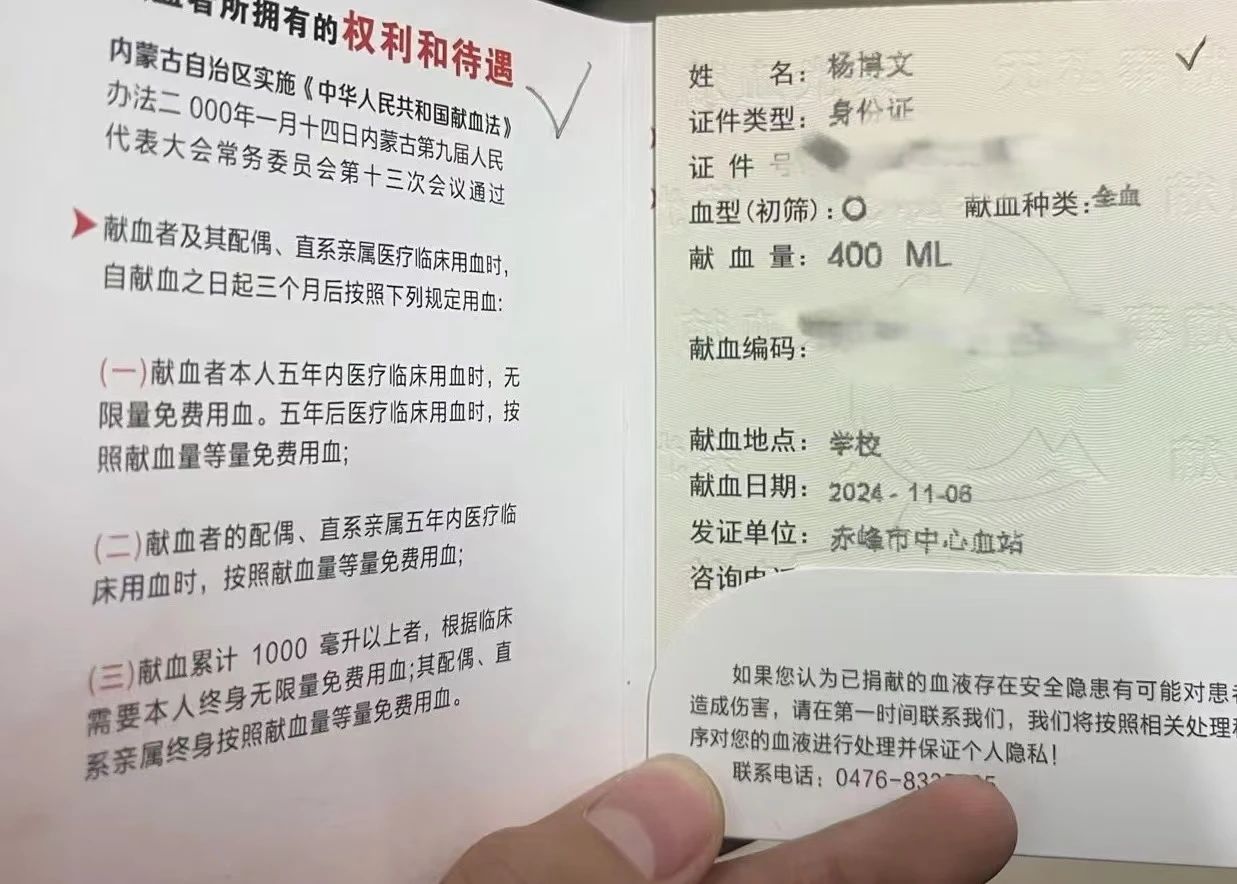 血者所拥有的权利和待遇
内蒙古自治区实施《中华人民共和国献血法》
办法二 000年一月十四日内蒙古第九届人民
代表大会常务委员会第十三次会议通过
献血者及其配偶、直系亲属医疗临床用血时,
自献血之日起三个月后按照下列规定用血:
(一)献血者本人五年内医疗临床用血时, 无
限量免费用血。五年后医疗临床用血时, 按
照献血量等量免费用血;
(二)献血者的配偶、直系亲属五年内医疗临
床用血时, 按照献血量等量免费用血;
(三)献血累计 1000 毫升以上者, 根据临床
需要本人终身无限量免费用血;其配偶、直
系亲属终身按照献血量等量免费用血。
姓 名: 杨博文
证件类型: 身份证
证 件 号
血型(初筛): O 献血种类: 全血
献 血 量: 400 ML
献血编码:
献血地点: 学校
献血日期: 2024-11-06
发证单位: 赤峰市中心血站
咨询电
如果您认为已捐献的血液存在安全隐患有可能对患者
造成伤害, 请在第一时间联系我们, 我们将按照相关处理程
序对您的血液进行处理并保证个人隐私!
联系电话: 0476-83